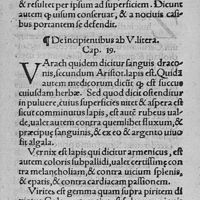 & resultet per ipsum ad superficiem. Dicunt
autem ꝙ uisum conseruat, & a nociuis casi-
bus portantem se defendit.
¶ De incipientibus ab V. litera.
Cap. 19.
VArach quidem dicitur sanguis draco-
nis, secundum Aristot. lapis est. Quidā
autem medicorum dicūt ꝙ est succus
cuiusdam herbæ. Sed quod dicit ostenditur
in puluere, cuius superficies nitet & aspera est
sicut comminutus lapis, est autem rubeus ual-
de, ualet autem contra quemlibet fluxum, &
præcipuę sanguinis, & ex eo & argento uiuo
fit algala.
Vernix est lapis qui dicitur armenicus, est
autem coloris subpallidi, ualet certissime con
tra melancholiam, & contra uicium splenis,
& epatis, & contra cardiacam passionem.
Virites est gemma quam supra piritem di